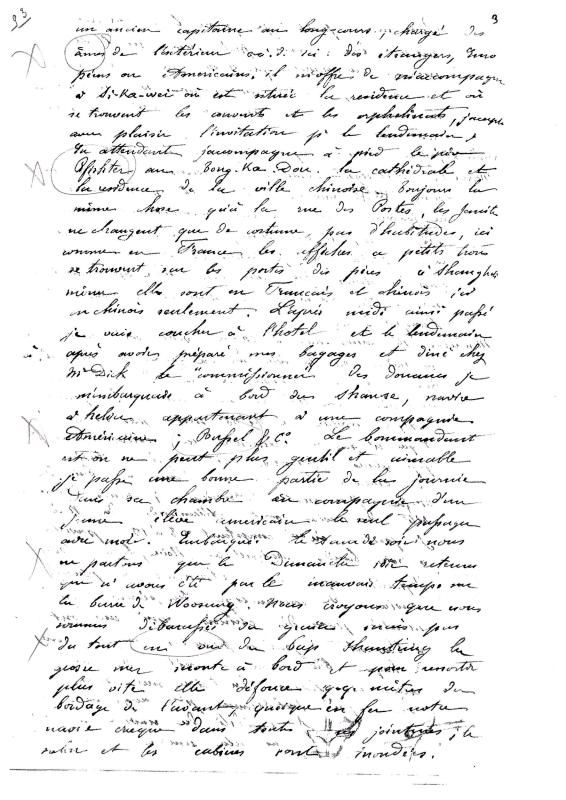 93 3
un ancien capitaine au long-cours, chargé des
âmes de l'intérieur c.à.d. ici : des étrangers, Euro
péens ou Américains; il m'offre de m'accompagner
à Si-Ka-wei où est située la résidence et où
se trouvent les couvents et les orphelinats, j'accepte
avec plaisir l'invitation pr le lendemain,
En attendant j'accompagne à pied le père
au Tong-Ka-Dou la cathédrale et
la résidence de la ville chinoise. Toujours la
même chose qu'à la rue des Postes, les Jésuites
ne changent que de costume, pas d'habitudes, ici
comme en France les affiches à petits trous
se trouvent sur les portes des pères à Shanghai
même elles sont en Français et chinois ici
en chinois seulement. L'après midi ainsi passé
je vais coucher à l'hotel et le lendemain
après avoir préparé mes bagages et diné chez
Mr Dick le "commissionner" des douanes je
m'embarquais à bord du Shanse, navire
à hélice appartenant à une compagnie
Américaine ; Russel & Co. Le Commandant
est on ne peut plus gentil et aimable
je passe une bonne partie de la journée
dans sa chambre en compagnie d'un
jeune élève americain le seul passager
avec moi. Embarqués le soir nous
ne partons que le Dimanche retenus
que n' avons été par le mauvais temps sur
la barre de Woosung. Nous croyons que nous
sommes débarassés du mais pas
du tout en vue du cap Shantung la
grosse mer monte à bord et pour ressortir
plus vite elle défonce qqs mètres du
bordage de l'avant, quoique en fer notre
navire craque dans toutes ses jointures, le
salon et les cabines sont inondées.